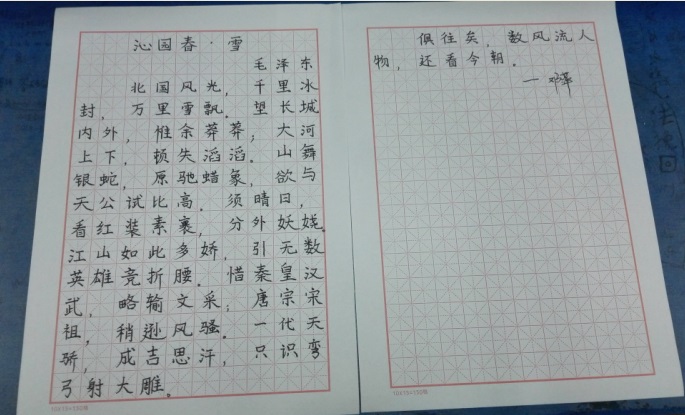 沁园春·雪
毛泽东
北国风光，千里冰
封，万里雪飘。望长城
内外，惟余莽莽，大河
上下，顿失滔滔。山舞
银蛇，原驰蜡象，欲与
天公试比高。须晴日，
看红装素裹，分外妖娆。
江山如此多娇，引无数
英雄竞折腰。惜秦皇汉
武，略输文采；唐宗宋
祖，稍逊风骚。一代天
骄，成吉思汗，只识弯
弓射大雕。
俱往矣，数风流人
物，还看今朝。